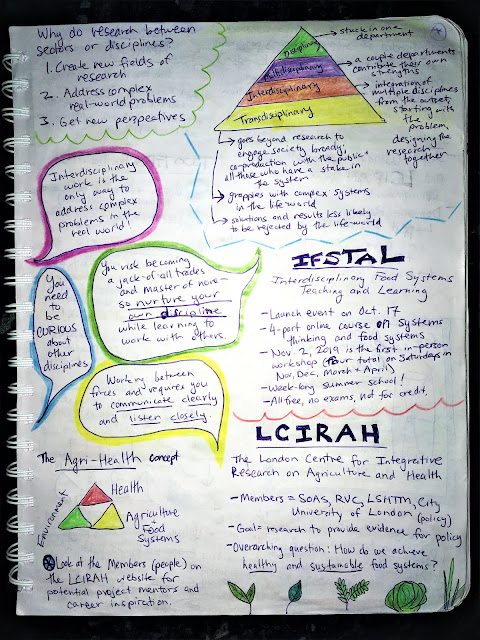 Why do research between
sectors or disciplines?
1. Create new fields of
research
2. Address complex
real-world problems
3. Get new perspectives
Disciplinary
Multidisciplinary
Interdisciplinary
Transdisciplinary
stuck in one
department
a couple departments
contribute their own
strengths
integration of
multiple disciplines
from the outset,
starting with
the problem,
designing the
research
together
goes beyond research to
engage society broadly;
co-production with the public +
all those who have a stake in
the system
grapples with complex systems
in the life-world
solutions and results less likely
to be rejected by the life-world
Interdisciplinary
work is the
only way to
address complex
problems in the
real world!
You risk becoming
a jack-of-all trades
and master of none—
so nurture your
own discipline
while learning to
work with others.
You
need to
be
CURIOUS
about
other
disciplines
Working between
forces and requires you
to communicate clearly
and listen closely.
IFSTAL
Interdisciplinary Food Systems
Teaching and Learning
- Launch event on Oct. 17
- 4-part online course on systems
thinking and food systems
- Nov. 2, 2019 is the first in-person
workshop (four total on Saturdays in
Nov, Dec, March + April)
- Week-long summer school!
- All free, no exams, not for credit.
LCIRAH
The London Centre for Integrative
Research on Agriculture and Health
- Members = SOAS, RVC, LSHTM, City
University of London
(policy)
- Goal = research to provide evidence for policy
- Overarching question: How do we achieve
healthy and sustainable food systems?
The Agri-Health concept
Health
Environment
Agriculture
Food
Systems
Look at the Members (people) on
the LCIRAH website for
potential project mentors and
career inspiration.